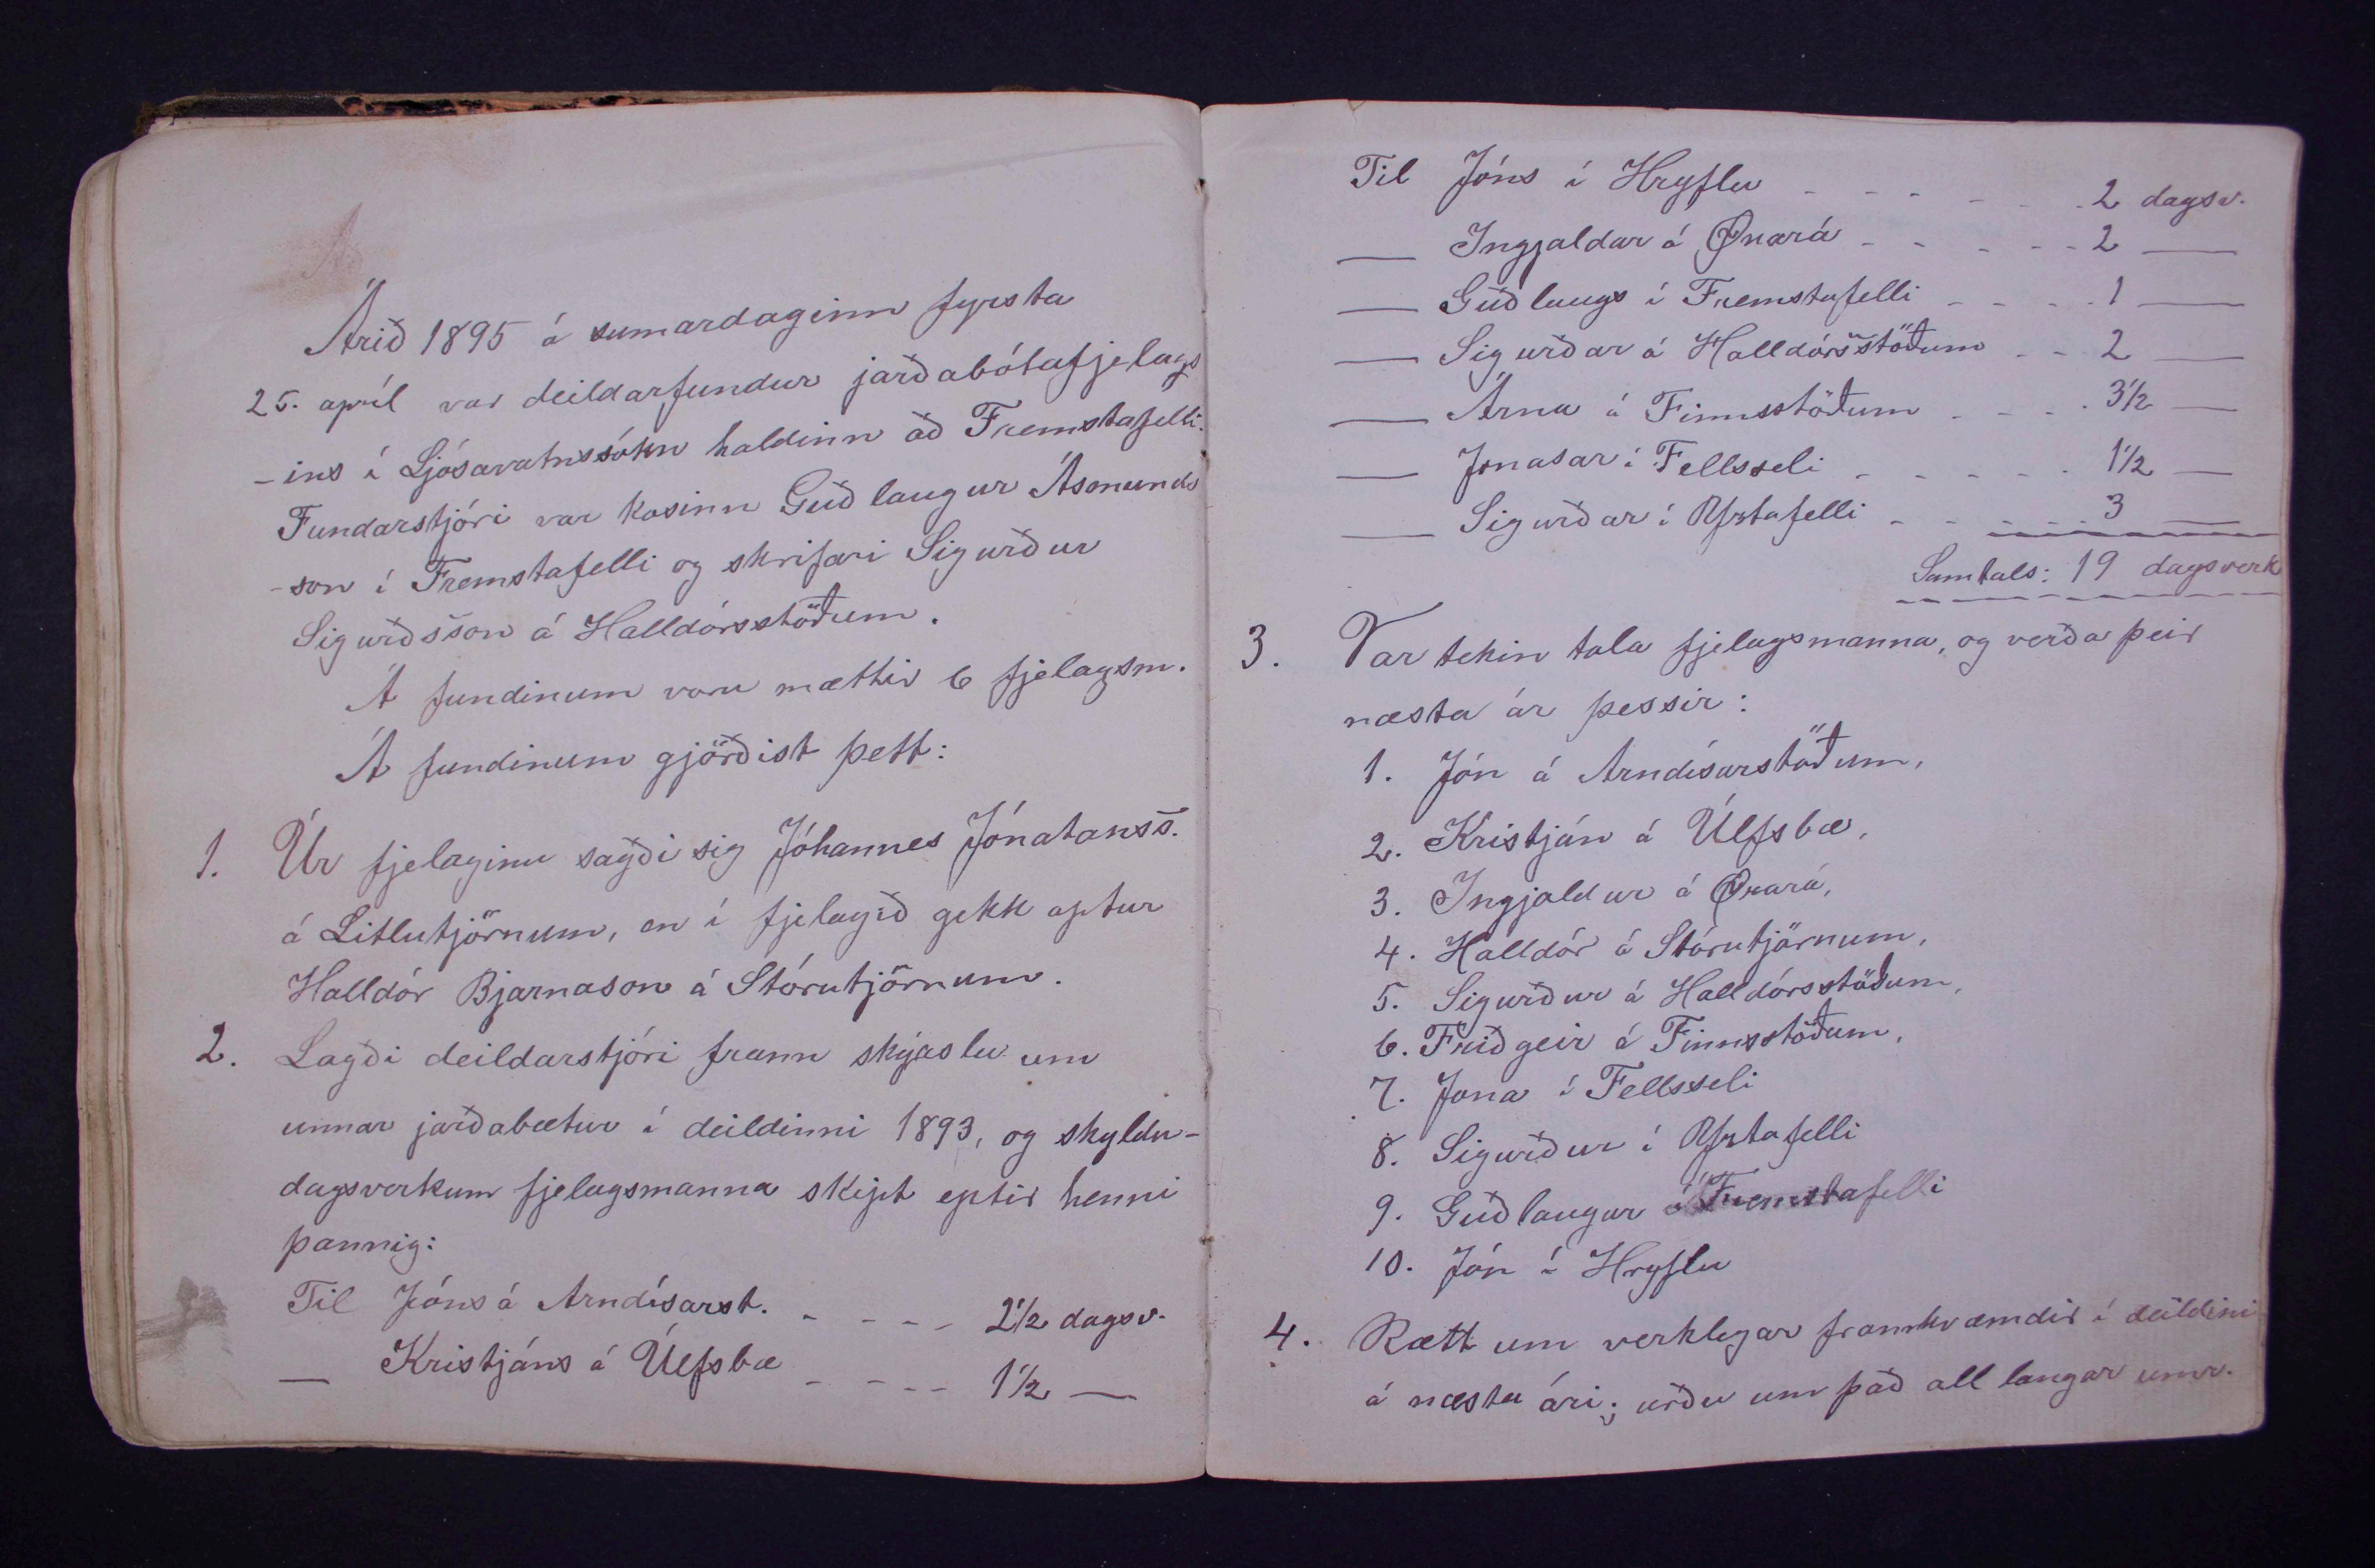 Árið 1895 á sumardaginn fyrsta
25. apríl var deildarfundur jarðabótafjelags
-ins í Ljósavatnssókn haldinn að Fremstafelli.
Fundarstjóri var kosinn Guðlaugur Ásmunds
-son í Fremstafelli og skrifari Sigurður
Sigurðsson á Halldórsstöðum.
Á fundinum voru mættir 6 fjelagsm.
Á fundinum gjörðist þett:
1. Úr fjelaginu sagði sig Jóhannes Jónatanss.
á Litlutjörnum, en í fjelagið gekk aptur
Halldór Bjarnason á Stórutjörnum.
2. Lagði deildarstjóri framm skýrslu um
unnar jarðabætur í deildinni 1893, og skyldu-
dagsverkum fjelagsmanna skipt eptir henni
þannig:
Til Jóns á Arndísarst. - - - - 2½ dagsv.
— Kristjáns á Úlfsbæ - - - - 1½ —
Til Jóns í Hryflu - - - - - - 2 dagsv.
— Ingjaldar á Øxará - - - - - 2 —
— Guðlaugs í Fremstafelli - - - - 1 —
— Sigurðar á Halldórsstöðum - - 2 —
— Árna á Finnsstöðum - - - - 3½ —
— Jonasar í Fellsseli - - - - - 1½ —
— Sigurðar í Yfstafelli - - - - - 3 —
Samtals: 19 dagsverk
3. Var tekin tala fjelagsmanna, og verða þeir
næsta ár þessir:
1. Jón á Arndísarstöðum,
2. Kristján á Úlfsbæ,
3. Ingjaldur á Øxará,
4. Halldór á Stórutjörnum,
5. Sigurður á Halldórsstöðum,
6. Friðgeir á Finnsstöðum,
7. Jona í Fellsseli
8. Sigurður í Yfstafelli
9. Guðlaugur í Fremstafelli
10. Jón í Hryflu
4. Rætt um verklegar framkvæmdir í deildini
á næsta ári; urðu um það all langar umr.